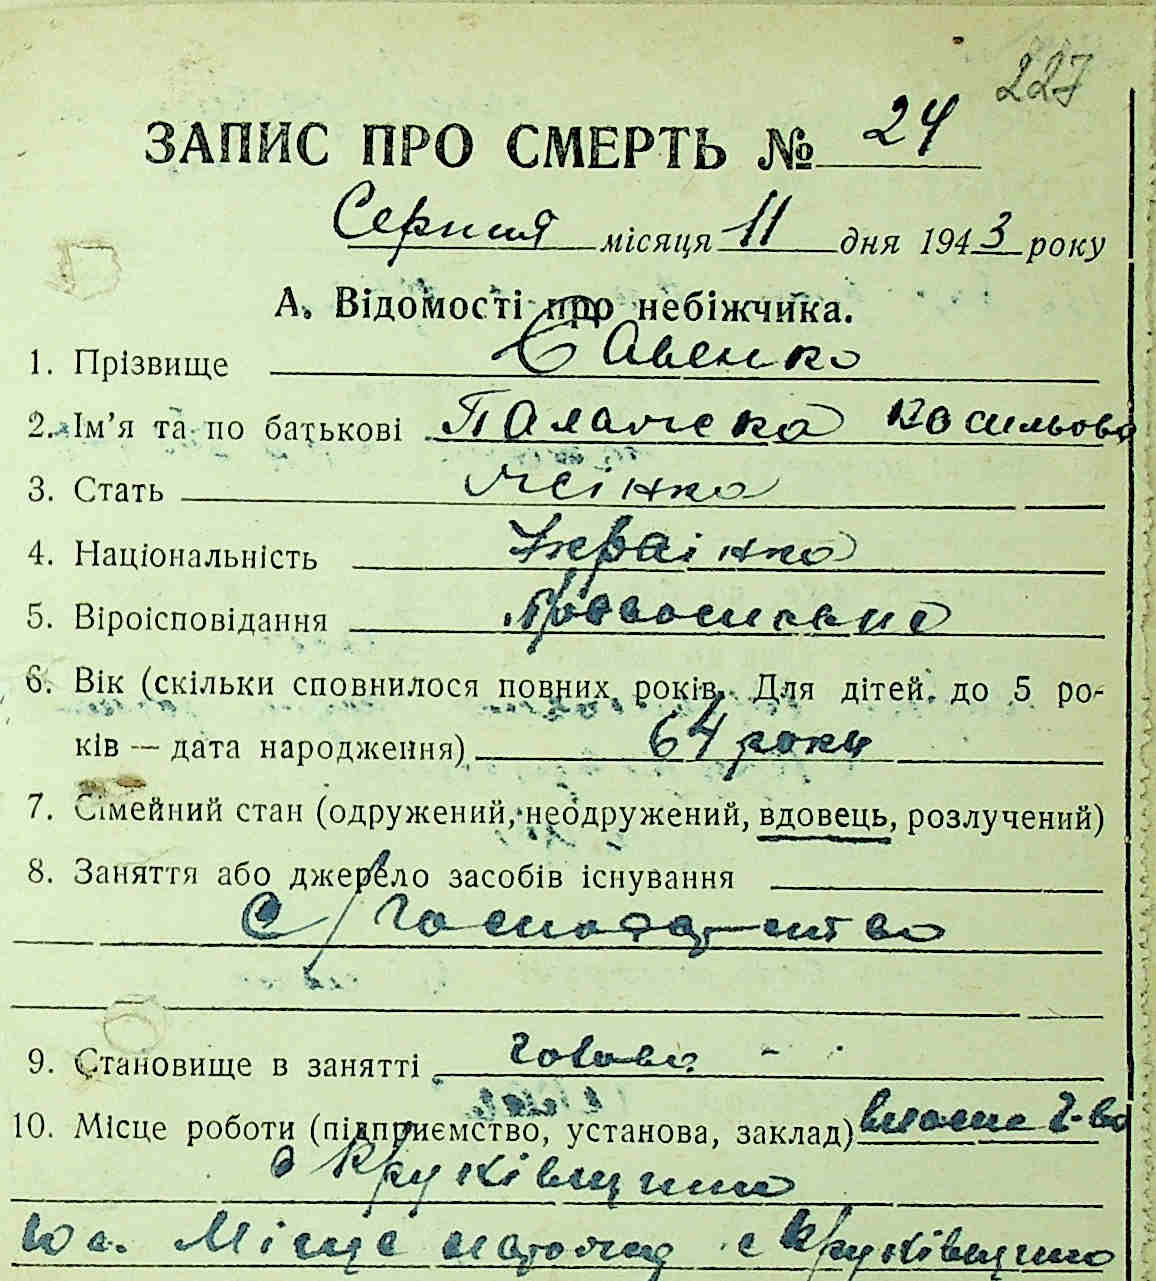 227
ЗАПИС ПРО СМЕРТЬ № 24
Серпня місяця 11 дня 1943 року
А. Відомості про небіжчика.
1. Прізвище Савенко
2. Ім'я та по батькові Палажка Васильова
3. Стать жінка
4. Національність Українка
5. Віроісповідання Православне
6. Вік (скільки сповнилося повних років. Для дітей до 5 ро-
ків — дата народження) 64 роки
7. Сімейний стан (одружений, неодружений, вдовець, розлучений)
8. Заняття або джерело засобів існування
С/господарство
9. Становище в занятті голова
10. Місце роботи (підприємство, установа, заклад) власне г-во
с Круківщина
10 а. Місце народж с Круківщина